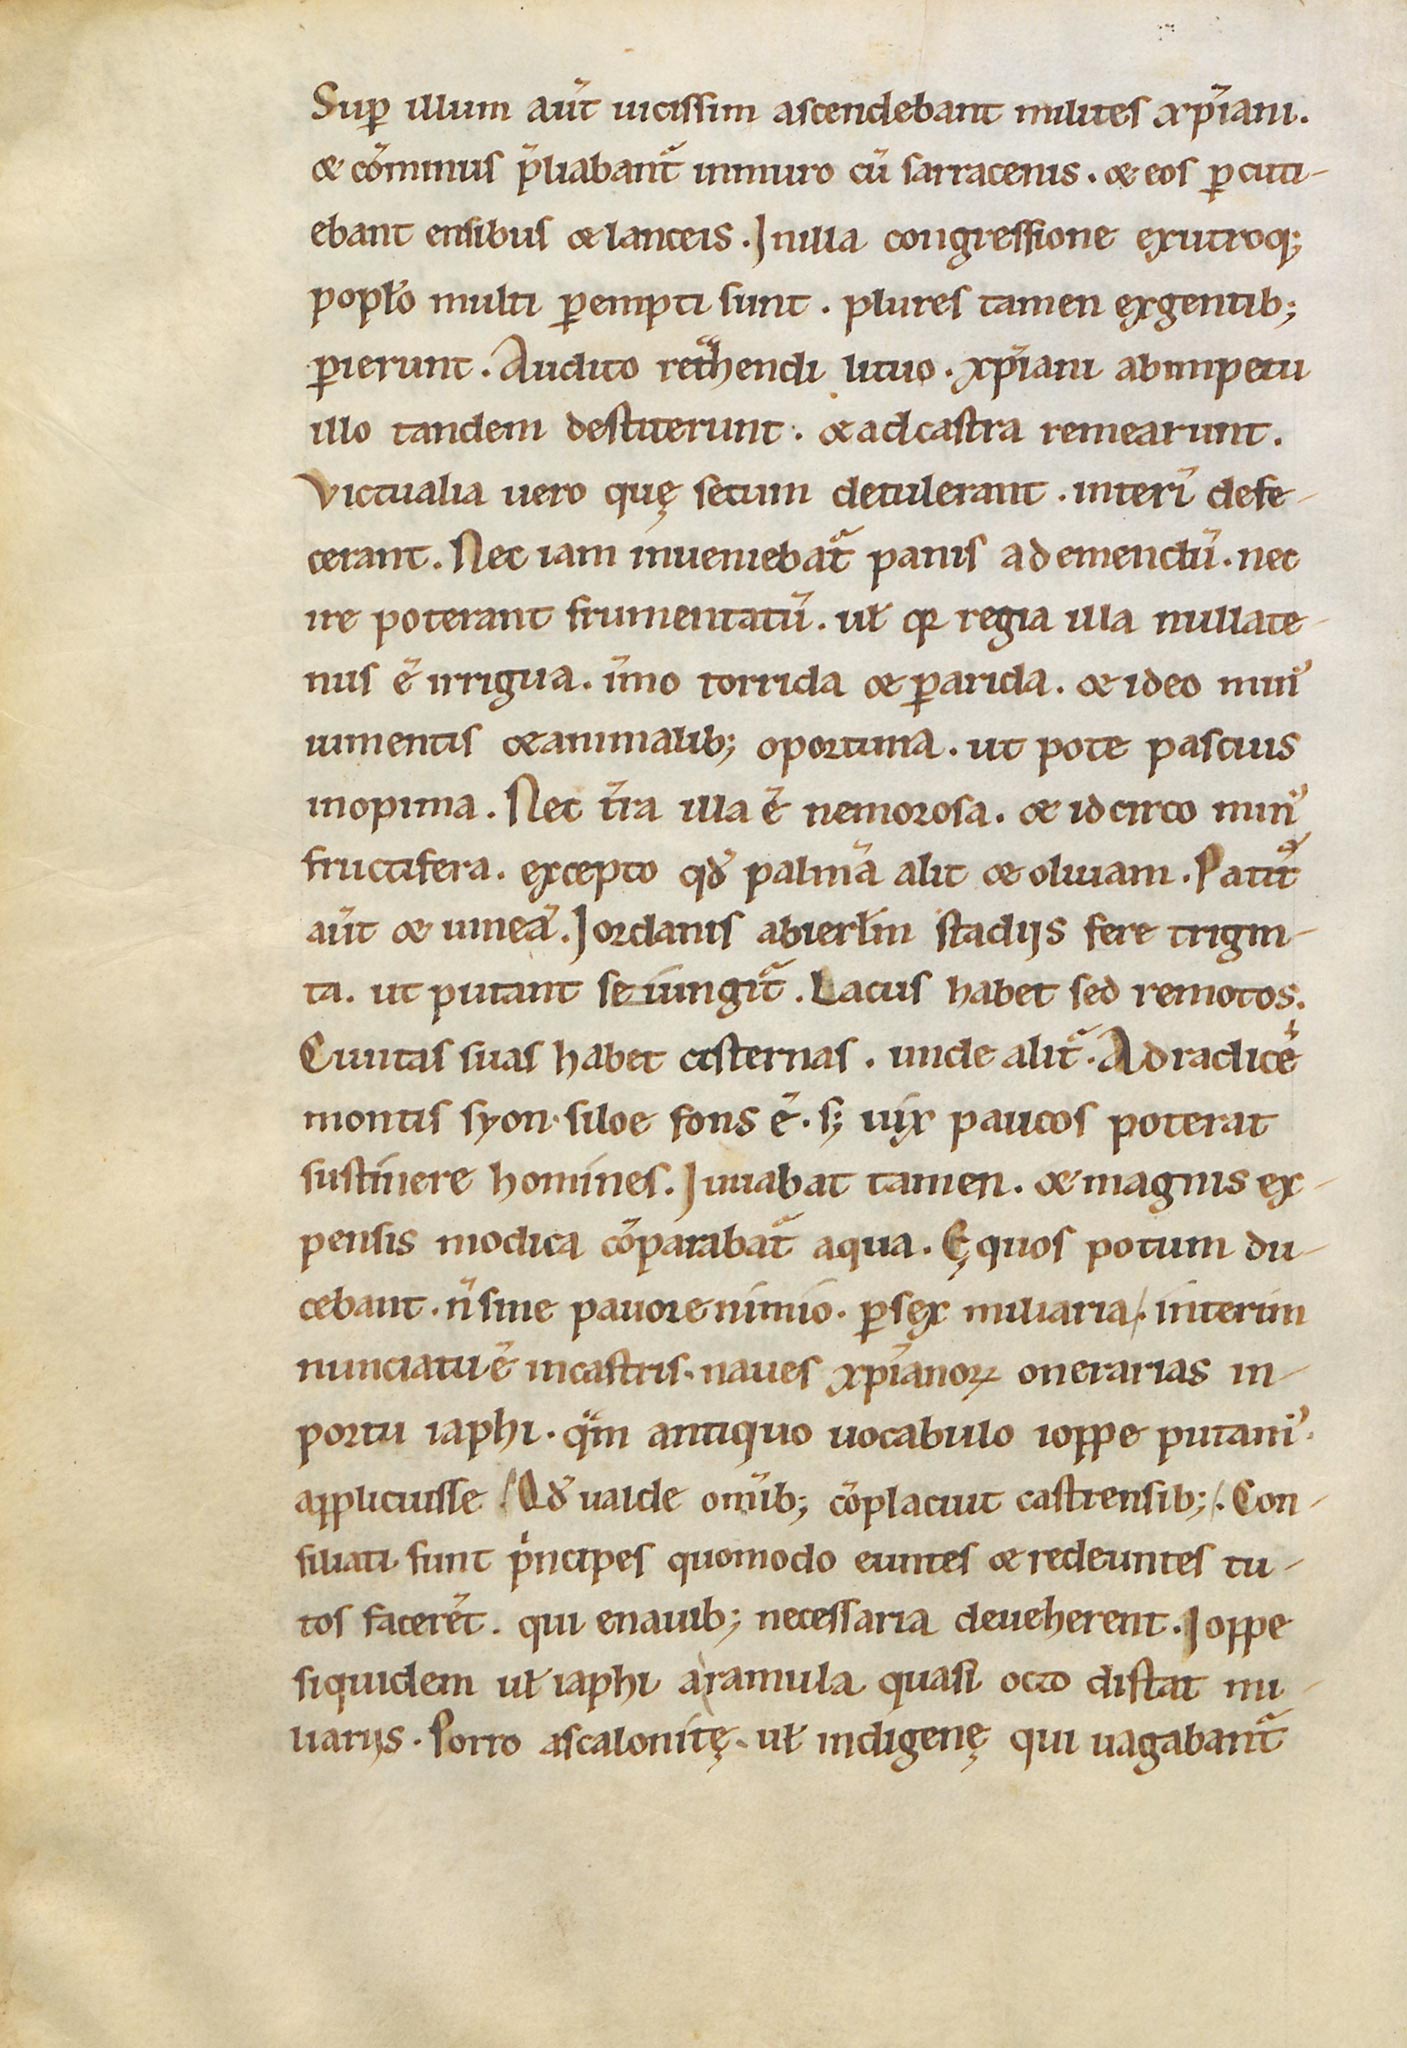 Sup̲ illum aut̄ uicissim ascendebant milites xp̄iani.
& com̄inus p̄liabant᷑ inmuro cū sarracenis. & eos p̲cuti-
ebant ensibus & lanceis. Inilla congressione exutroq;
popl̄o multi p̲empti sunt. plures tamen exgentib;
p̲ierunt. Audito retᷓhendi lituo. xp̄iani abimpetu
illo tandem destiterunt. & adcastra remearunt.
Victualia uero quę secum detulerant. interī defe-
cerant. Nec iam inueniebat᷑ panis ademendū. nec
ire poterant frumentatū. uł qꝛ regia illa nullate-
nus ē irrigua. īmo torrida & p̲arida. & ideo min᾽
iumentis & animalib; oportuna. ut pote pascuis
inopima. Nec t̄ra illa ē nemorosa. & idcirco min᾽
fructifera. excepto qd̄ palmā alit & oliuam. Patit᷑
aut̄ & uineā. Iordanis abierl̄m stadijs fere trigin-
ta. ut putant seiungit᷑. Lacus habet sed remotos.
Ciuitas suas habet cisternas. unde alit᷑. Adradicē
montis syon. siloe fons ē. s; uix paucos poterat
sustinere homines. Iuuabat tamen. & magnis ex-
pensis modica cōparabat᷑ aqua. Ęquos potum du-
cebant. n̄ sine pauore nimio. p̲sex miliaria. interim
nunciatū ē incastris. naues xp̄ianoꝝ onerarias in-
portu iaphi. qᷓm antiquo uocabulo ioppe putam᾽.
applicuisse. Qd̄ ualde om̄ib; cōplacuit castrensib;. Con-
siliati sunt pͥncipes quomodo euntes & redeuntes tu-
tos facerēt. qui enauib; necessaria deueherent. Ioppe
siquidem uł iaphi aramula quasi octo distat mi-
liarijs. Porro ascalonitę. uł indigenę qui uagabant᷑